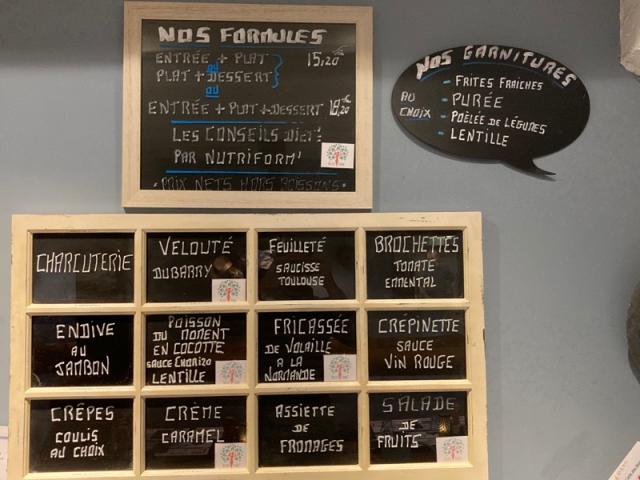 NOS FORMULES
ENTRÉE + PLAT 15,20€
ou
PLAT + DESSERT
ou
ENTRÉE + PLAT + DESSERT 18,20€
LES CONSEILS DIET!
PAR NUTRIFORM'
• PRIX NETS HORS BOISSONS •
NOS GARNITURES
AU CHOIX
- FRITES FRAICHES
- PURÉE
- POÊLÉE DE LÉGUMES
- LENTILLE
CHARCUTERIE
VELOUTÉ
DUBARRY
FEUILLETÉ
SAUCISSE
TOULOUSE
BROCHETTES
TOMATE
EMMENTAL
ENDIVE
AU
JAMBON
POISSON
DU MOMENT
EN COCOTTE
SAUCE CHORIZO
LENTILLE
FRICASSÉE
DE VOLAILLE
A LA
NORMANDE
CRÉPINETTE
SAUCE
VIN ROUGE
CRÊPES
COULIS
AU CHOIX
CRÈME
CARAMEL
ASSIETTE
DE
FROMAGES
SALADE
DE
FRUITS